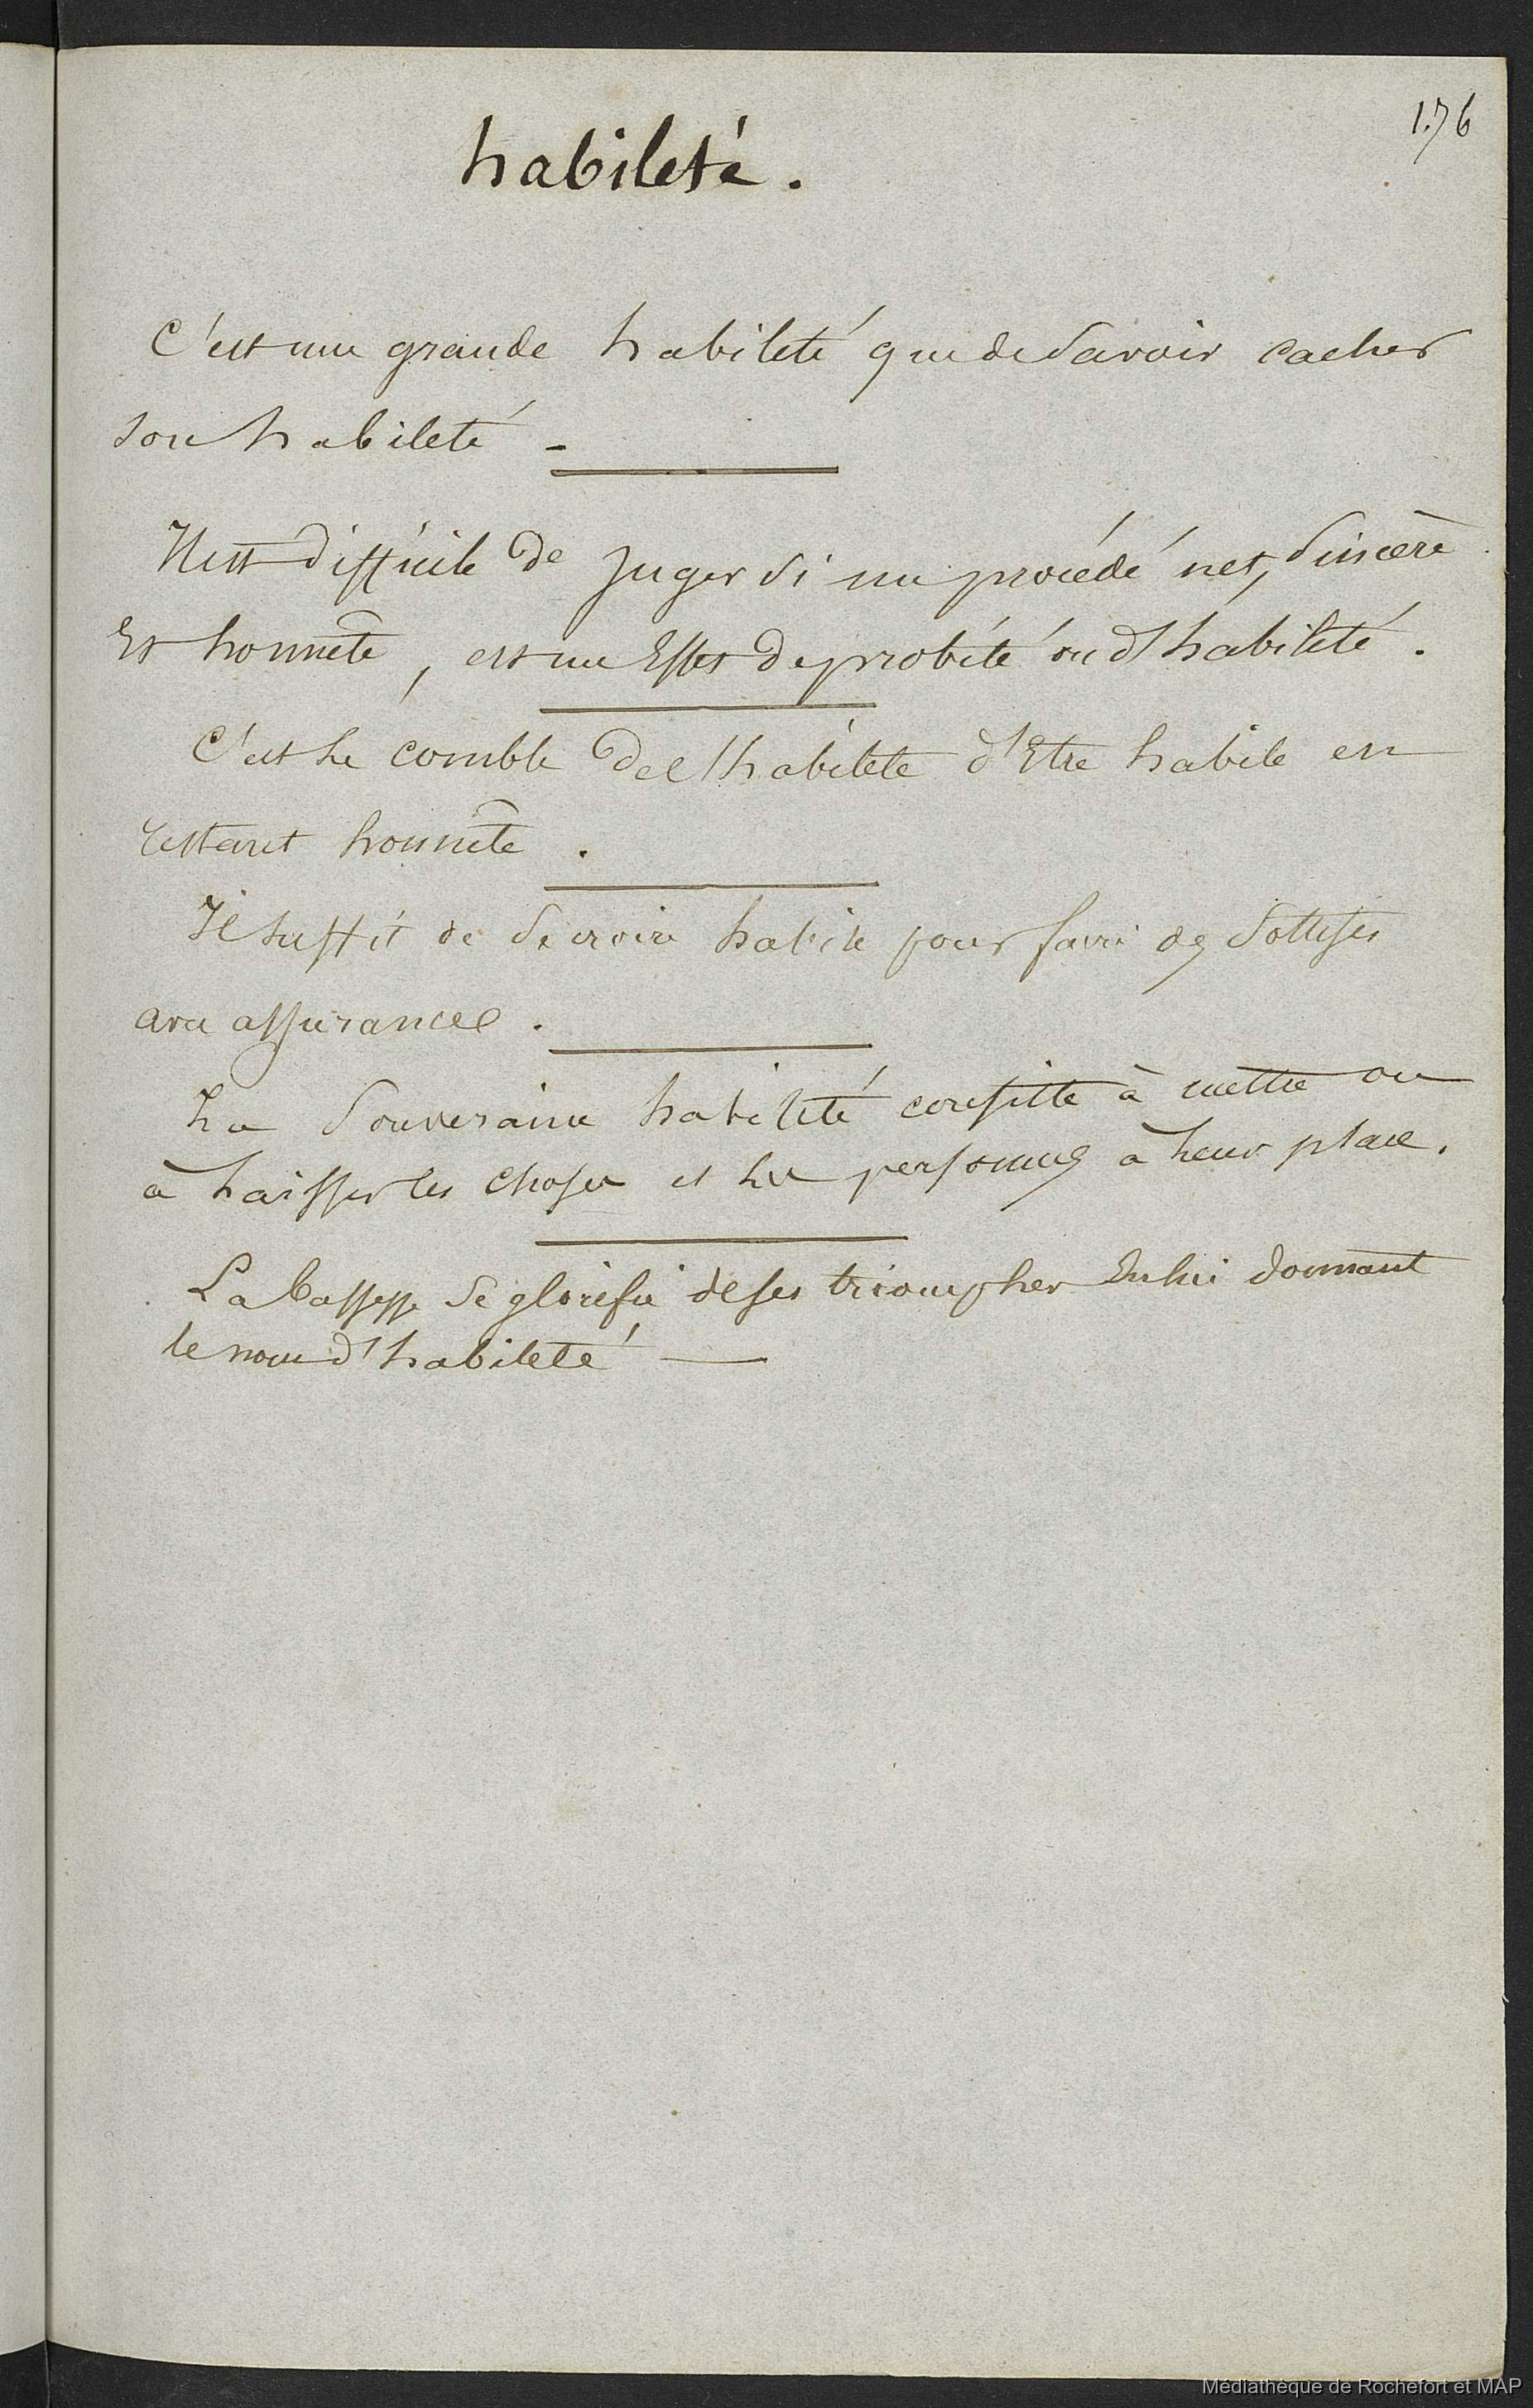 176
habileté.
C'est une grande habileté que de Savoir cacher
son habileté -
Il est difficile de Juger Si un procédé net, Sincère
Et honnête, est un Effet de probité ou d'habileté.
C'est le comble de l'habileté d'Etre habile en
restant honnête.
Il suffit de Se croire habile pour faire des Sottises
avec assurance.
La Souveraine habileté consiste à mettre ou
à laisser les choses et les personnes à leur place.
La bassesse Se glorifie de ses triompher En lui donnant
le nom d'habileté —
Médiathèque de Rochefort et MAP